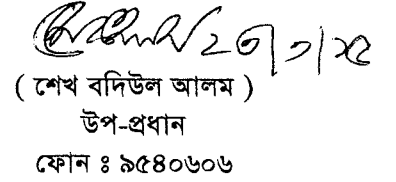 ২৩/১/২৫
( শেখ বদিউল আলম )
উপ-প্রধান
ফোন ঃ ৯৫৪০৬০৬